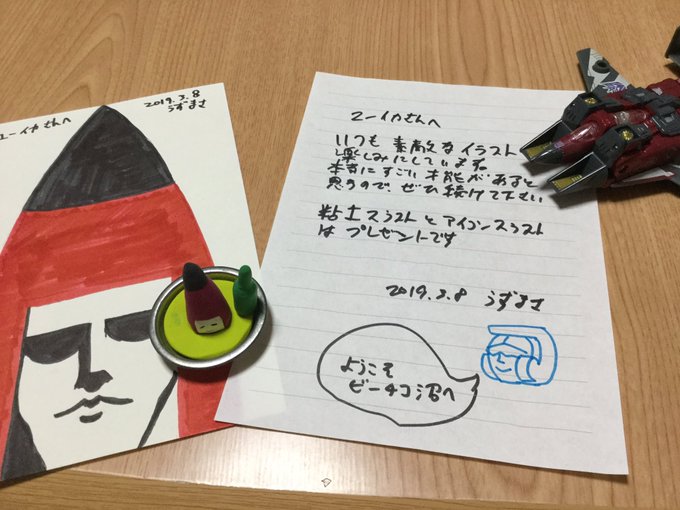 ユーイカさんへ
2019.3.8
うずまさ
ユーイカさんへ
いつも 素敵なイラスト
楽しみにしています。
本当にすごい才能があると
思うので、ぜひ続けて下さい
粘土スラスト と アイコンスラスト
は プレゼントです
2019.3.8 うずまさ
ようこそ
ビーチコ沼へ